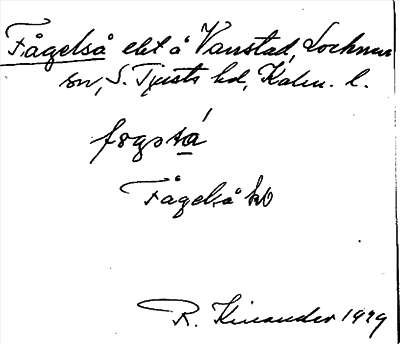 Fågelså ebt å Vanstad, Locknevi
sn, S. Tjusts hd, Kalm. l.
fogsså
Fågelså kb
R. Kinander 1929